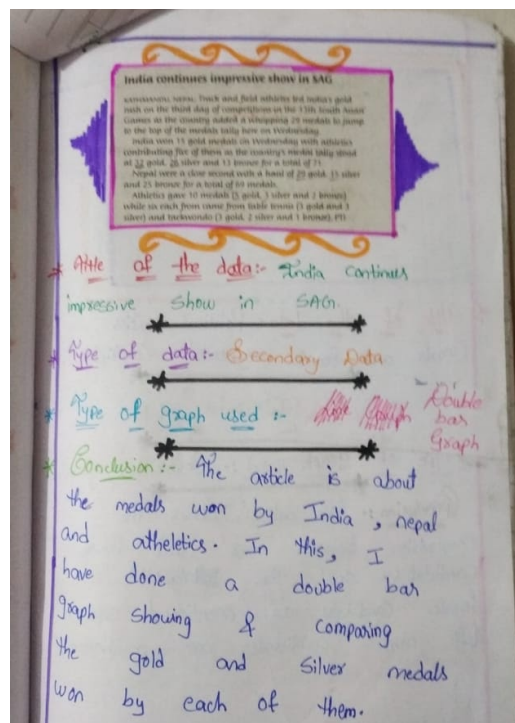 India continues impressive show in SAG
KATHMANDU, NEPAL: Track and field athletes led India's gold
rush on the third day of competitions in the 13th South Asian
Games as the country added a whopping 29 medals to jump
to the top of the medals tally here on Wednesday.
India won 15 gold medals on Wednesday with athletics
contributing five of them as the country's medal tally stood
at 32 gold, 26 silver and 13 bronze for a total of 71.
Nepal were a close second with a haul of 29 gold, 15 silver
and 25 bronze for a total of 69 medals.
Athletics gave 10 medals (5 gold, 3 silver and 2 bronze)
while six each from came from table tennis (3 gold and 3
silver) and taekwondo (3 gold, 2 silver and 1 bronze). PTI
* Title of the data:- India Continues
impressive Show in SAG.
* Type of data:- Secondary Data
* Type of graph used :- Double
bar
Graph
* Conclusion :- The article is about
the medals won by India , nepal
and atheletics. In this, I
have done a double bar
graph showing & comparing
the gold and Silver medals
won by each of them.